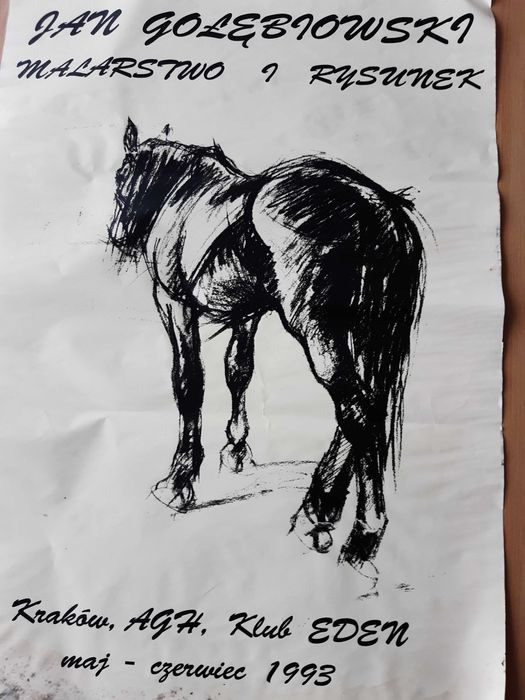 JAN GOŁĘBIOWSKI
MALARSTWO I RYSUNEK
Kraków, AGH, Klub EDEN
maj - czerwiec 1993